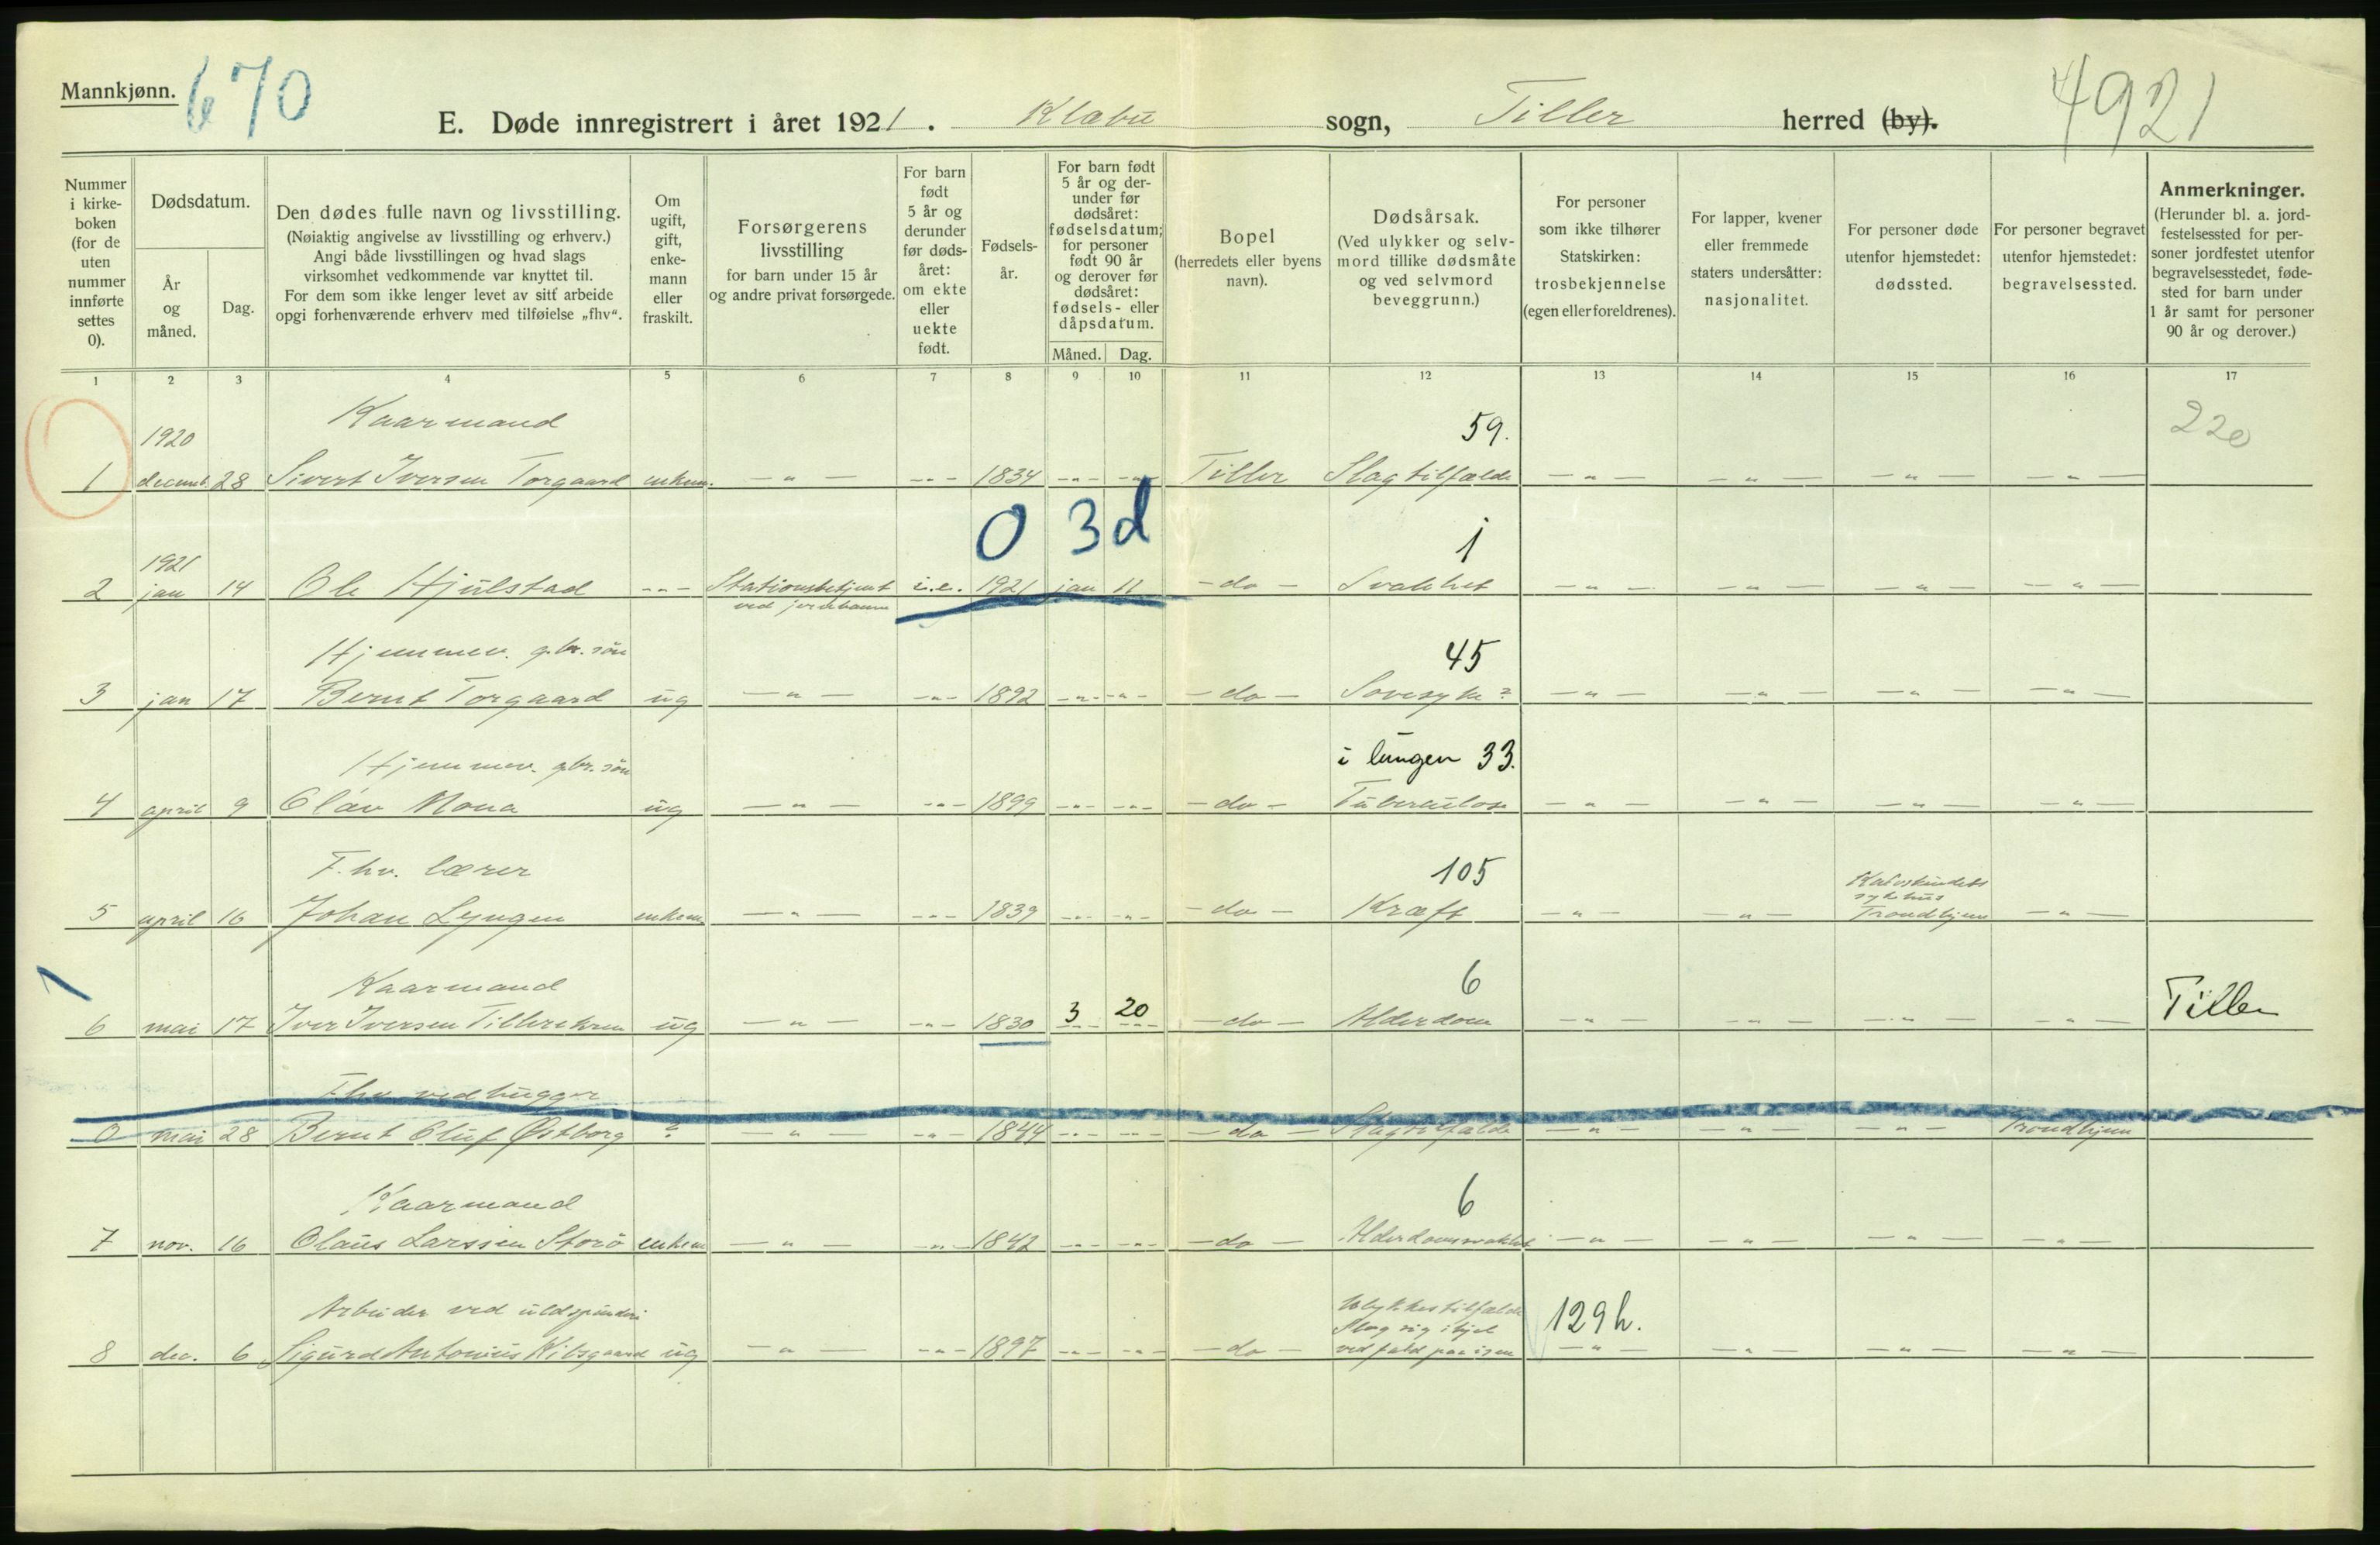 Mannkjønn.
670
4921
E. Døde innregistrert i året 1921. Klæbu sogn, Tiller herred (by).
Nummer i kirkeboken (for de uten nummer innførte settes 0).
Dødsdatum.
År og måned.
Dag.
Den dødes fulle navn og livsstilling.
(Nøiaktig angivelse av livsstilling og erhverv.)
Angi både livsstillingen og hvad slags
virksomhet vedkommende var knyttet til.
For dem som ikke lenger levet av sitt arbeide
opgi forhenværende erhverv med tilføielse „fhv“.
Om ugift, gift, enkemann eller fraskilt.
Forsørgerens livsstilling
for barn under 15 år
og andre privat forsørgede.
For barn født 5 år og derunder før dødsåret: om ekte eller uekte født.
Fødselsår.
For barn født 5 år og derunder før dødsåret: fødselsdatum; for personer født 90 år og derover før dødsåret: fødsels- eller dåpsdatum.
Måned. Dag.
Bopel
(herredets eller byens navn).
Dødsårsak.
(Ved ulykker og selvmord tillike dødsmåte og ved selvmord beveggrunn.)
For personer som ikke tilhører Statskirken: trosbekjennelse (egen eller foreldrenes).
For lapper, kvener eller fremmede staters undersåtter: nasjonalitet.
For personer døde utenfor hjemstedet: dødssted.
For personer begravet utenfor hjemstedet: begravelsessted.
Anmerkninger.
(Herunder bl. a. jordfestelsessted for personer jordfestet utenfor begravelsesstedet, fødested for barn under 1 år samt for personer 90 år og derover.)
1 2 3 4 5 6 7 8 9 10 11 12 13 14 15 16 17
1920 Kaarmand 59. 220
1 decemb. 28 Sivert Iversen Torgaard enkem. - " - - " - 1834 - " - - " - Tiller Slagtilfælde - " - - " - - " - - " -
0 3 d
1921 1
2 jan 14 Ole Hjulstad - " - Stationsbetjent i.e. 1921 jan 11 - do - Svakhet - " - - " - - " - - " -
ved jernbanen
Hjemmev. gbr. søn 45
3 jan 17 Bernt Torgaard ug - " - - " - 1892 - " - - " - - do - Sovesyke? - " - - " - - " - - " -
Hjemmev. gbr. søn i lungen 33.
4 april 9 Olav Mona ug - " - - " - 1899 - " - - " - - do - Tuberculose - " - - " - - " - - " -
F. hv. lærer 105
5 april 16 Johan Lyngen enkem - " - - " - 1839 - " - - " - - do - Kræft - " - - " - sykehus Trondhjem - " -
Kaarmand 6
6 mai 17 Iver Iversen ug - " - - " - 1830 3 20 - do - Alderdom - " - - " - - " - - " - Tiller
Fhv. vedhugger
0 mai 28 Bernt Oluf Østborg ? - " - - " - 1844 - " - - " - - do - Slagtilfælde - " - - " - - " - Trondhjem
Kaarmand 6
7 nov. 16 Olaus Larssen Storø enkem - " - - " - 1842 - " - - " - - do - Alderdomssvakhet - " - - " - - " - - " -
Arbeider ved uldspinderi Ulykkestilfælde 129 h.
Slog sig ihjel
8 dec. 6 Sigurd Antonius ug - " - - " - 1897 - " - - " - - do - ved fald paa isen - " - - " - - " - - " -